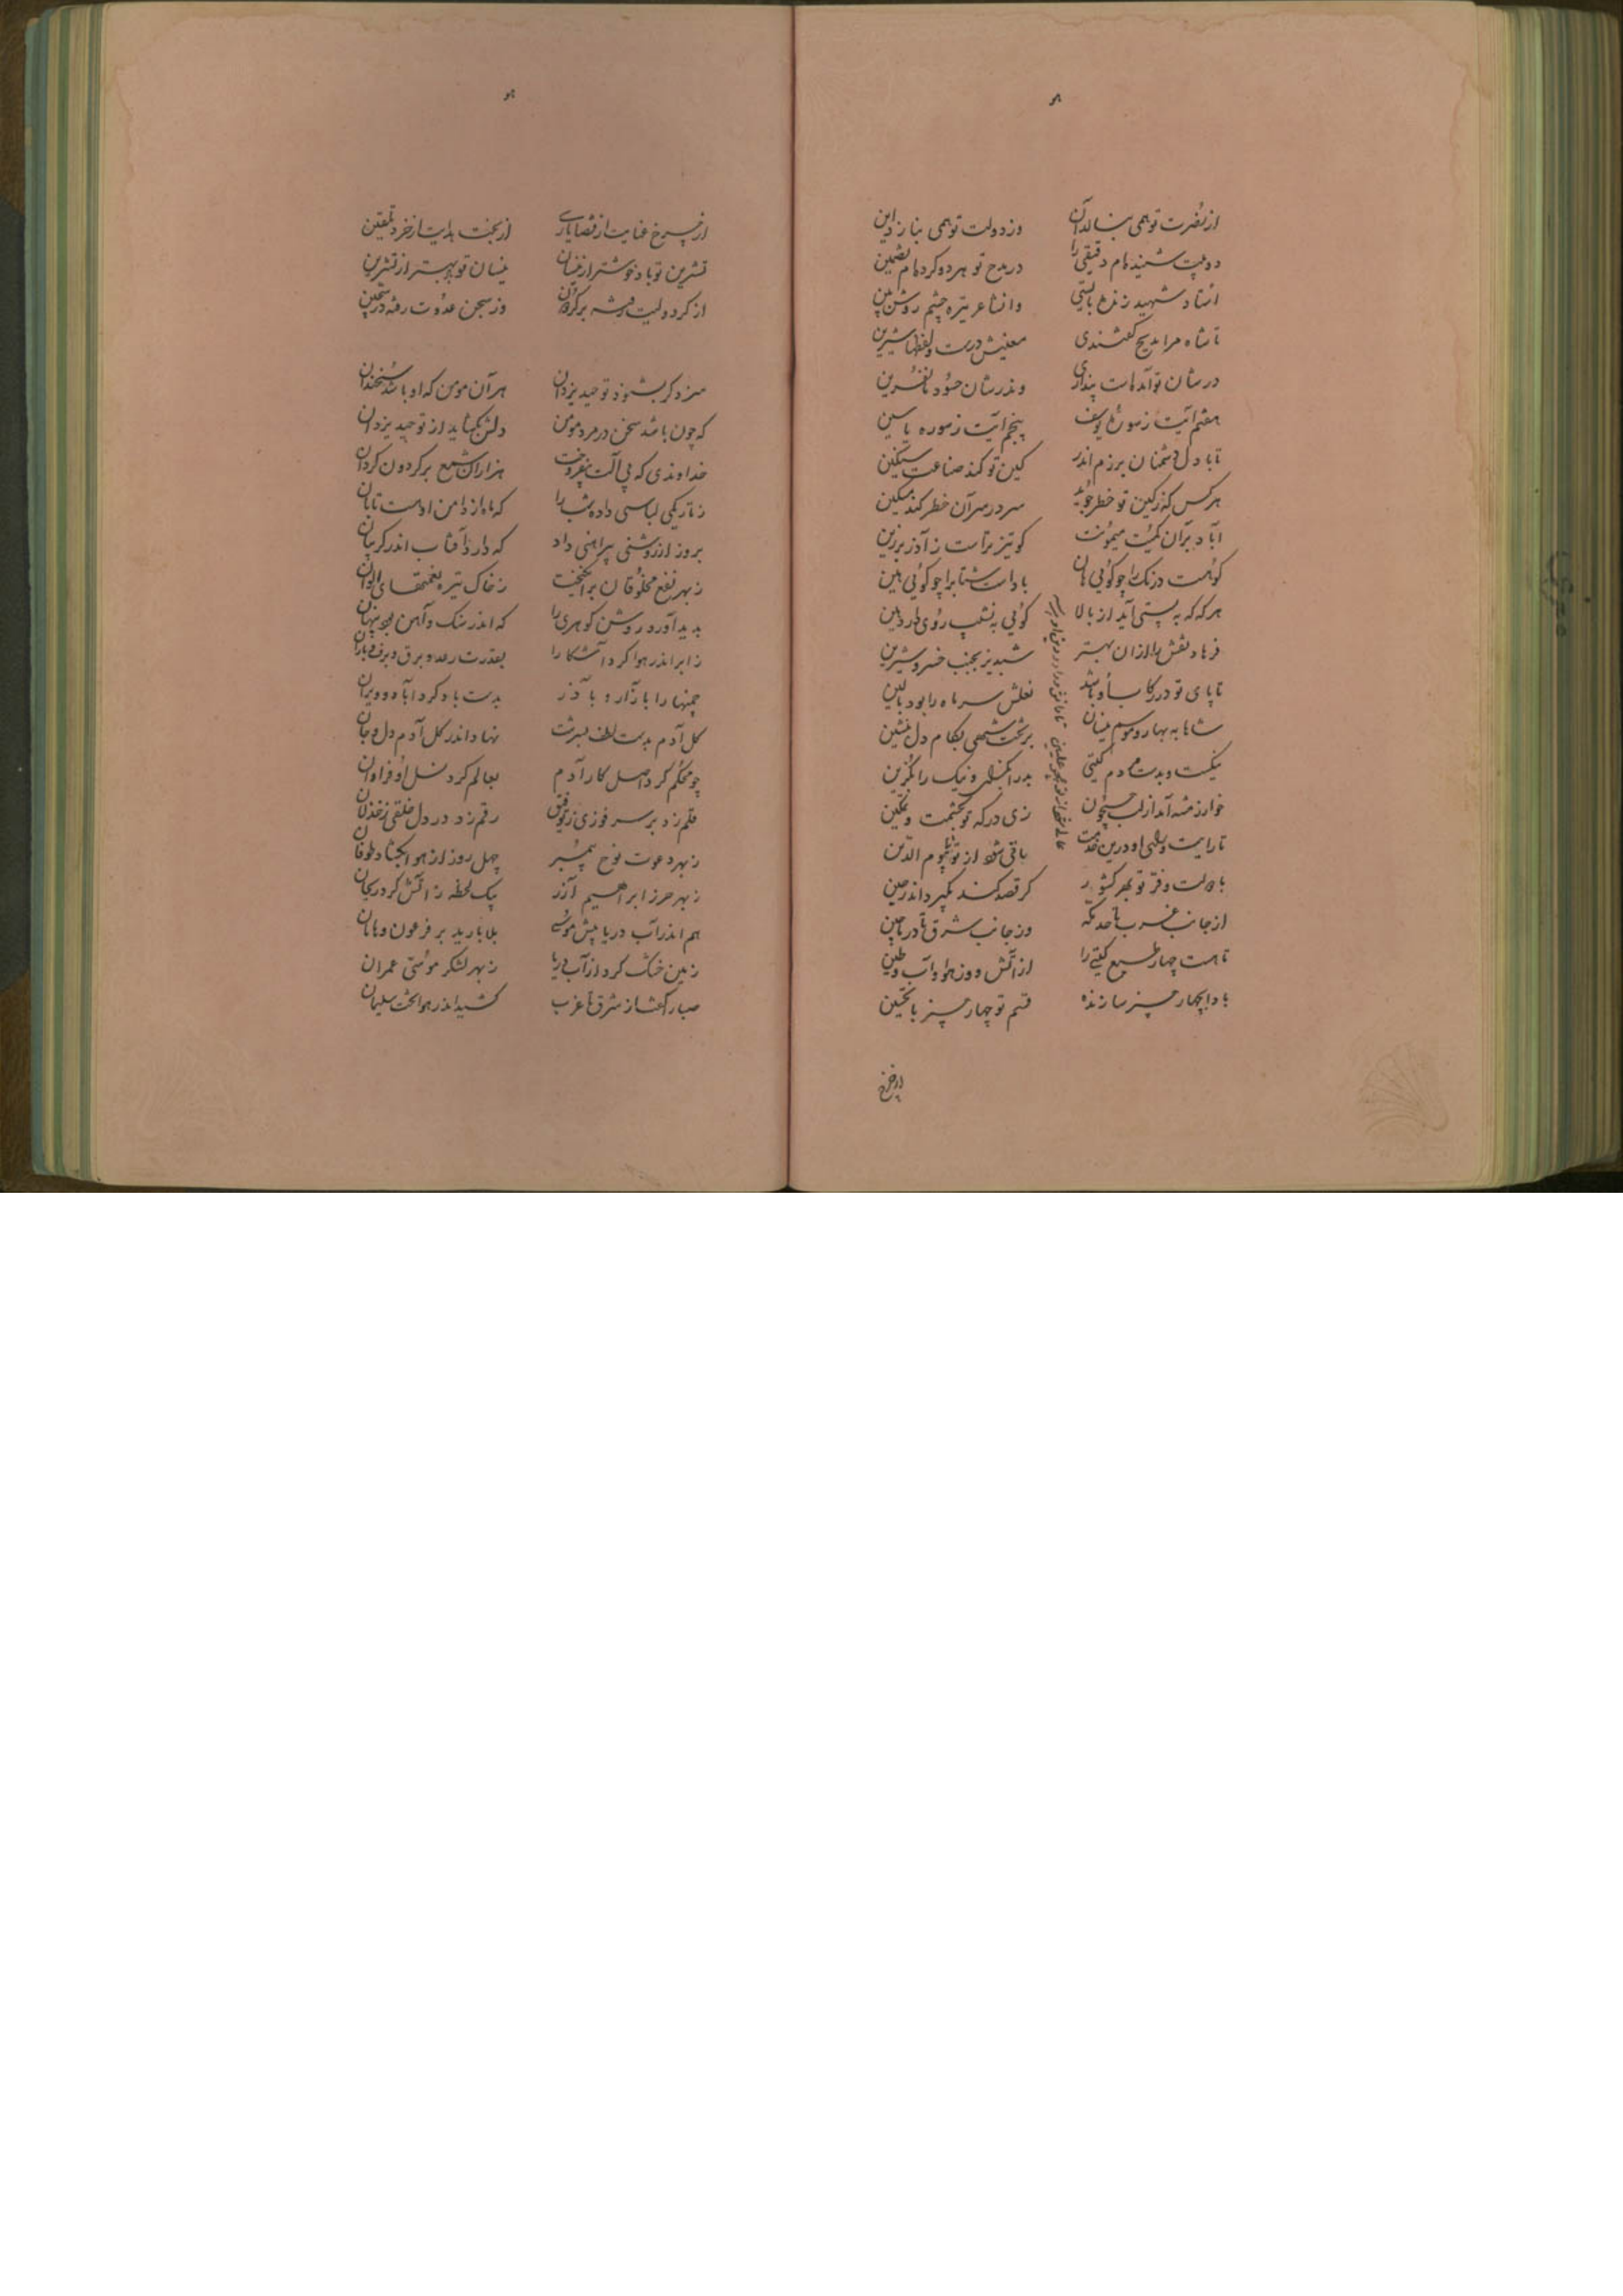 هو
از نصرت تو همی بنالد آن وز دولت تو همی بنازد این
دو بیت شنیده‌ام دقیقی را در مدح تو هر دو کرده‌ام تضمین
استاد شهید زنده بایستی وانشاعر تیره چشم روشن بین
تا شاه مرا مدیح گفتندی معنیش درست و لفظها شیرین
در شان تو آمدست پنداری و ندر شان حسود با نفرین
هفتم آیت ز سوره یوسف پنجم آیت ز سوره یاسین
تا با دل دشمنان برزم اندر کین تو کند صناعت سکین
هر کس کز کین تو خطر جوید سر در سر آن خطر کند مسکین
آباد بر آن کمیت میمونت کو تیزتر است ز آذر برزین
کوهست درنک را چو کوئی هان بادست شتاب را چو کوئی هین
هر که که به پستی آید از بالا کوئی به نشیب روی دارد
فرهاد نقش را از آن بهتر شبدیز بجنب خسرو و شیرین
تا پای تو در رکاب او باشد نعلش سر ماه را بود بالین
شاها به بهار و موسم نیسان بر تخت شهی بکام دل بنشین
نیکست و بدست مردم کیتی بد را بکسل و نیک را بکزین
خوارزمشه آمد از لب جیحون زی درکه تو بحشمت و تمکین
تا رایت و رای او درین خدمت باقی شود از تو تا بیوم الدین
با دولت و فر تو بهر کشور کر قصد کند بکیرد اندر حین
از جانب غرب تا حد مکه وز جانب شرق تا در ماچین
تا هست چهار طبع کیتی را از آتش و وز هوا و آب و طین
بادا چهار چیز سازنده قسم تو چهار چیز با تحسین
از چرخ
هو
از چرخ عنایت از قضا یاری از بخت هدایت از خرد تلقین
تشرین تو باد خوشتر از نیسان نیسان تو بهتر از تشرین
از کرد ولیت برکردون وز سجن عدوت رفته در سجین
سزد کر بشنود توحید یزدان هر آن مومن که او باشد سخندان
که چون باشد سخن در مرد مومن دلش بکشاید از توحید یزدان
خداوندی که بی آلت بیفروخت هزاران شمع بر کردون کردان
ز تاریکی لباسی داد شب را که ماه از دامن اوست تابان
بروز از روشنی پیراهنی داد که دارد آفتاب اندر کریبان
ز بهر نفع مخلوقان برانکیخت ز خاک تیره نعمتهای الوان
پدید آورد روشن کوهری را که اندر سنک و آهن بود پنهان
ز ابر اندر هوا کرد آشکارا بقدرت رعد و برق و برف و باران
چمنها را بازار و با آذر بدست باد کرد آباد و ویران
کل آدم بدست لطف بسرشت نهاد اندر کل آدم دل و جان
چو محکم کرد اصل کار آدم بعالم کرد نسل او فراوان
قلم زد بر سر فوزی ز توفیق رقم زد در دل خلقی ز خذلان
ز بهر دعوت نوح پیمبر چهل روز از هوا بکشاد طوفان
ز بهر حرز ابراهیم آزر بیک لحظه ز آتش کرد ریحان
هم اندر آب دریا پیش موسی بلا بارید بر فرعون و هامان
زمین خشک کرد از آب دریا ز بهر لشکر موسی عمران
صبا را کفت از شرق تا غرب کشید اندر هوا تخت سلیمان